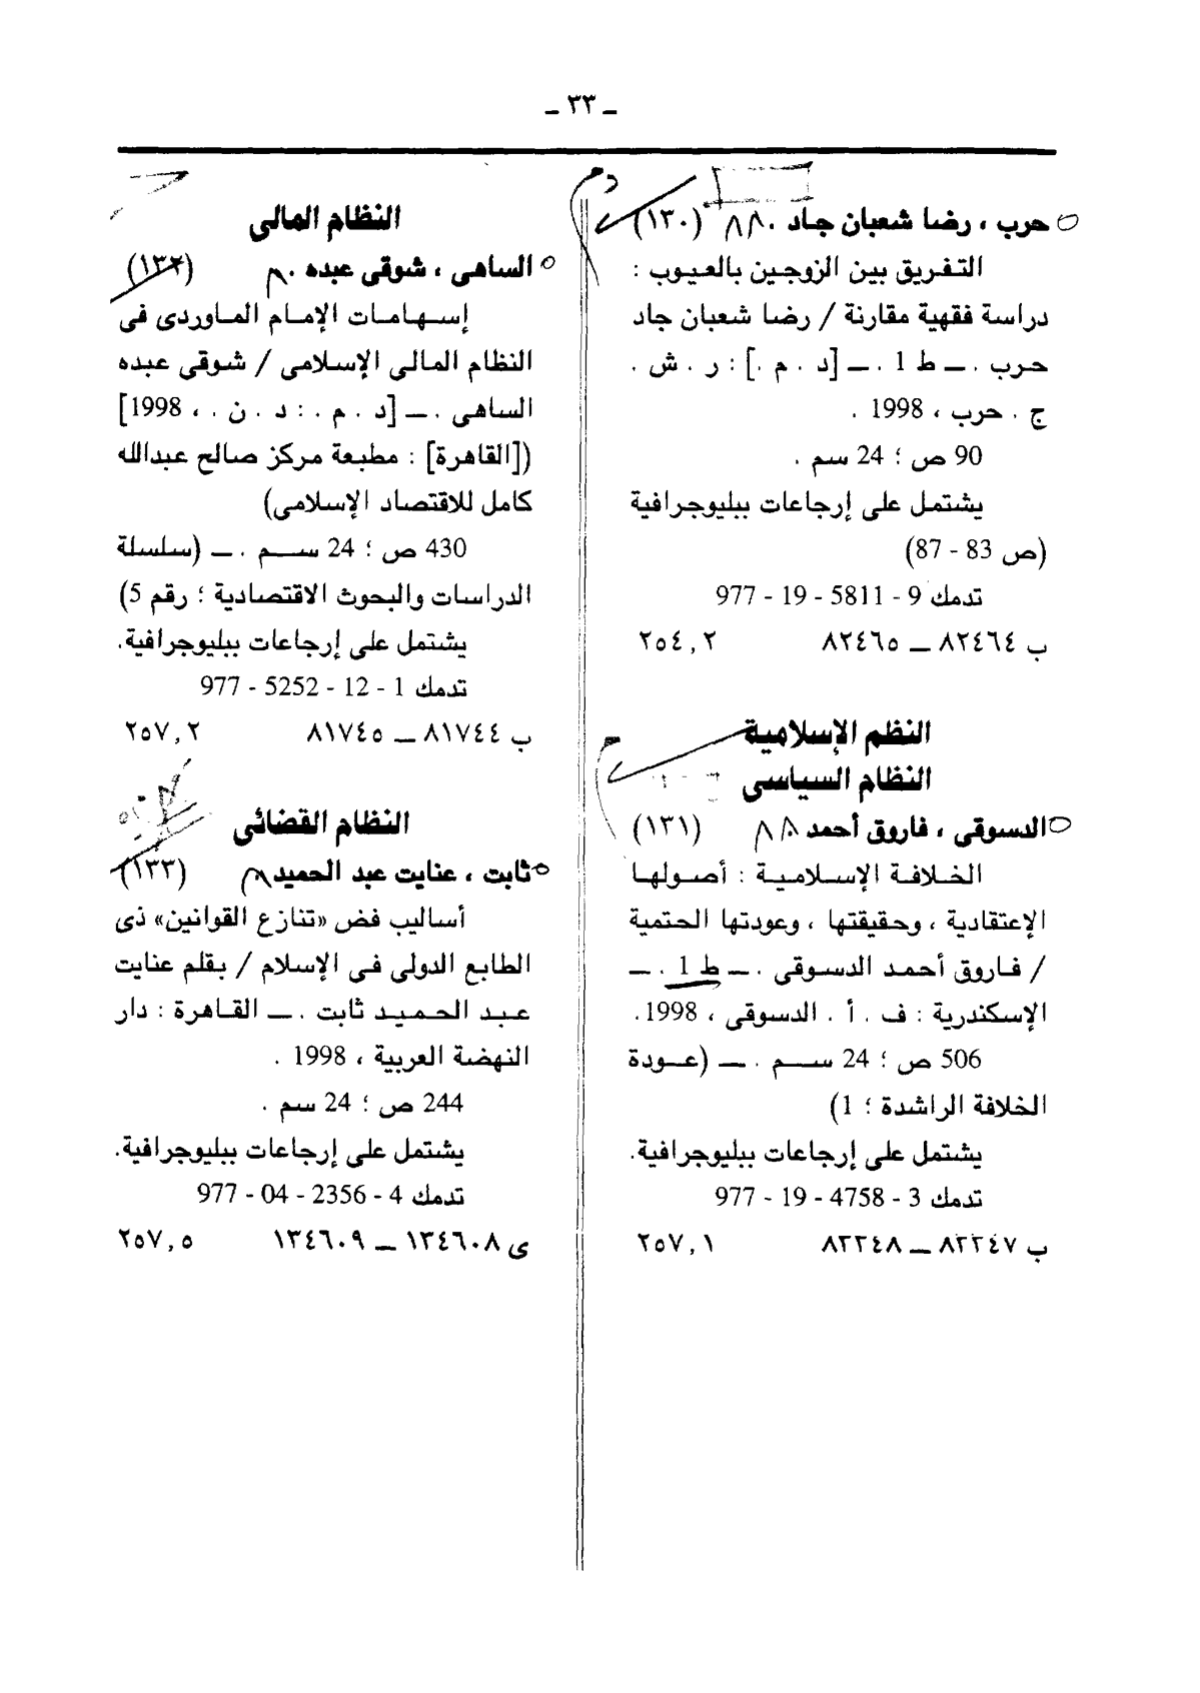 ـ ٣٣ ـ
حرب ، رضا شعبان جاد . ٨٨ (١٣٠)
التفريق بين الزوجين بالعيوب :
دراسة فقهية مقارنة / رضا شعبان جاد
حرب . ــ ط 1 . ــ [د . م .] : ر . ش .
ج . حرب ، 1998 .
90 ص ؛ 24 سم .
يشتمل على إرجاعات ببليوجرافية
(ص 83 - 87)
تدمك 9 - 5811 - 19 - 977
ب ٨٢٤٦٤ ــ ٨٢٤٦٥ ٢٥٤,٢
النظم الإسلامية
النظام السياسى
الدسوقى ، فاروق أحمد . ٨٨ (١٣١)
الخلافة الإسلامية : أصولها
الإعتقادية ، وحقيقتها ، وعودتها الحتمية
/ فاروق أحمد الدسوقى . ــ ط 1 . ــ
الإسكندرية : ف . أ . الدسوقى ، 1998.
506 ص ؛ 24 سم . ــ (عودة
الخلافة الراشدة ؛ 1)
يشتمل على إرجاعات ببليوجرافية.
تدمك 3 - 4758 - 19 - 977
ب ٨٢٢٤٧ ــ ٨٢٢٤٨ ٢٥٧,١
النظام المالى
الساهى ، شوقى عبده . ٨ (١٣٢)
إسهامات الإمام الماوردى فى
النظام المالى الإسلامى / شوقى عبده
الساهى . ــ [د . م . : د . ن . ، 1998]
([القاهرة] : مطبعة مركز صالح عبدالله
كامل للاقتصاد الإسلامى)
430 ص ؛ 24 سم . ــ (سلسلة
الدراسات والبحوث الاقتصادية ؛ رقم 5)
يشتمل على إرجاعات ببليوجرافية.
تدمك 1 - 12 - 5252 - 977
ب ٨١٧٤٤ ــ ٨١٧٤٥ ٢٥٧,٢
النظام القضائى
ثابت ، عنايت عبد الحميد ٨ (١٣٣)
أساليب فض «تنازع القوانين» ذى
الطابع الدولى فى الإسلام / بقلم عنايت
عبد الحميد ثابت . ــ القاهرة : دار
النهضة العربية ، 1998 .
244 ص ؛ 24 سم .
يشتمل على إرجاعات ببليوجرافية.
تدمك 4 - 2356 - 04 - 977
ى ١٣٤٦٠٨ ــ ١٣٤٦٠٩ ٢٥٧,٥